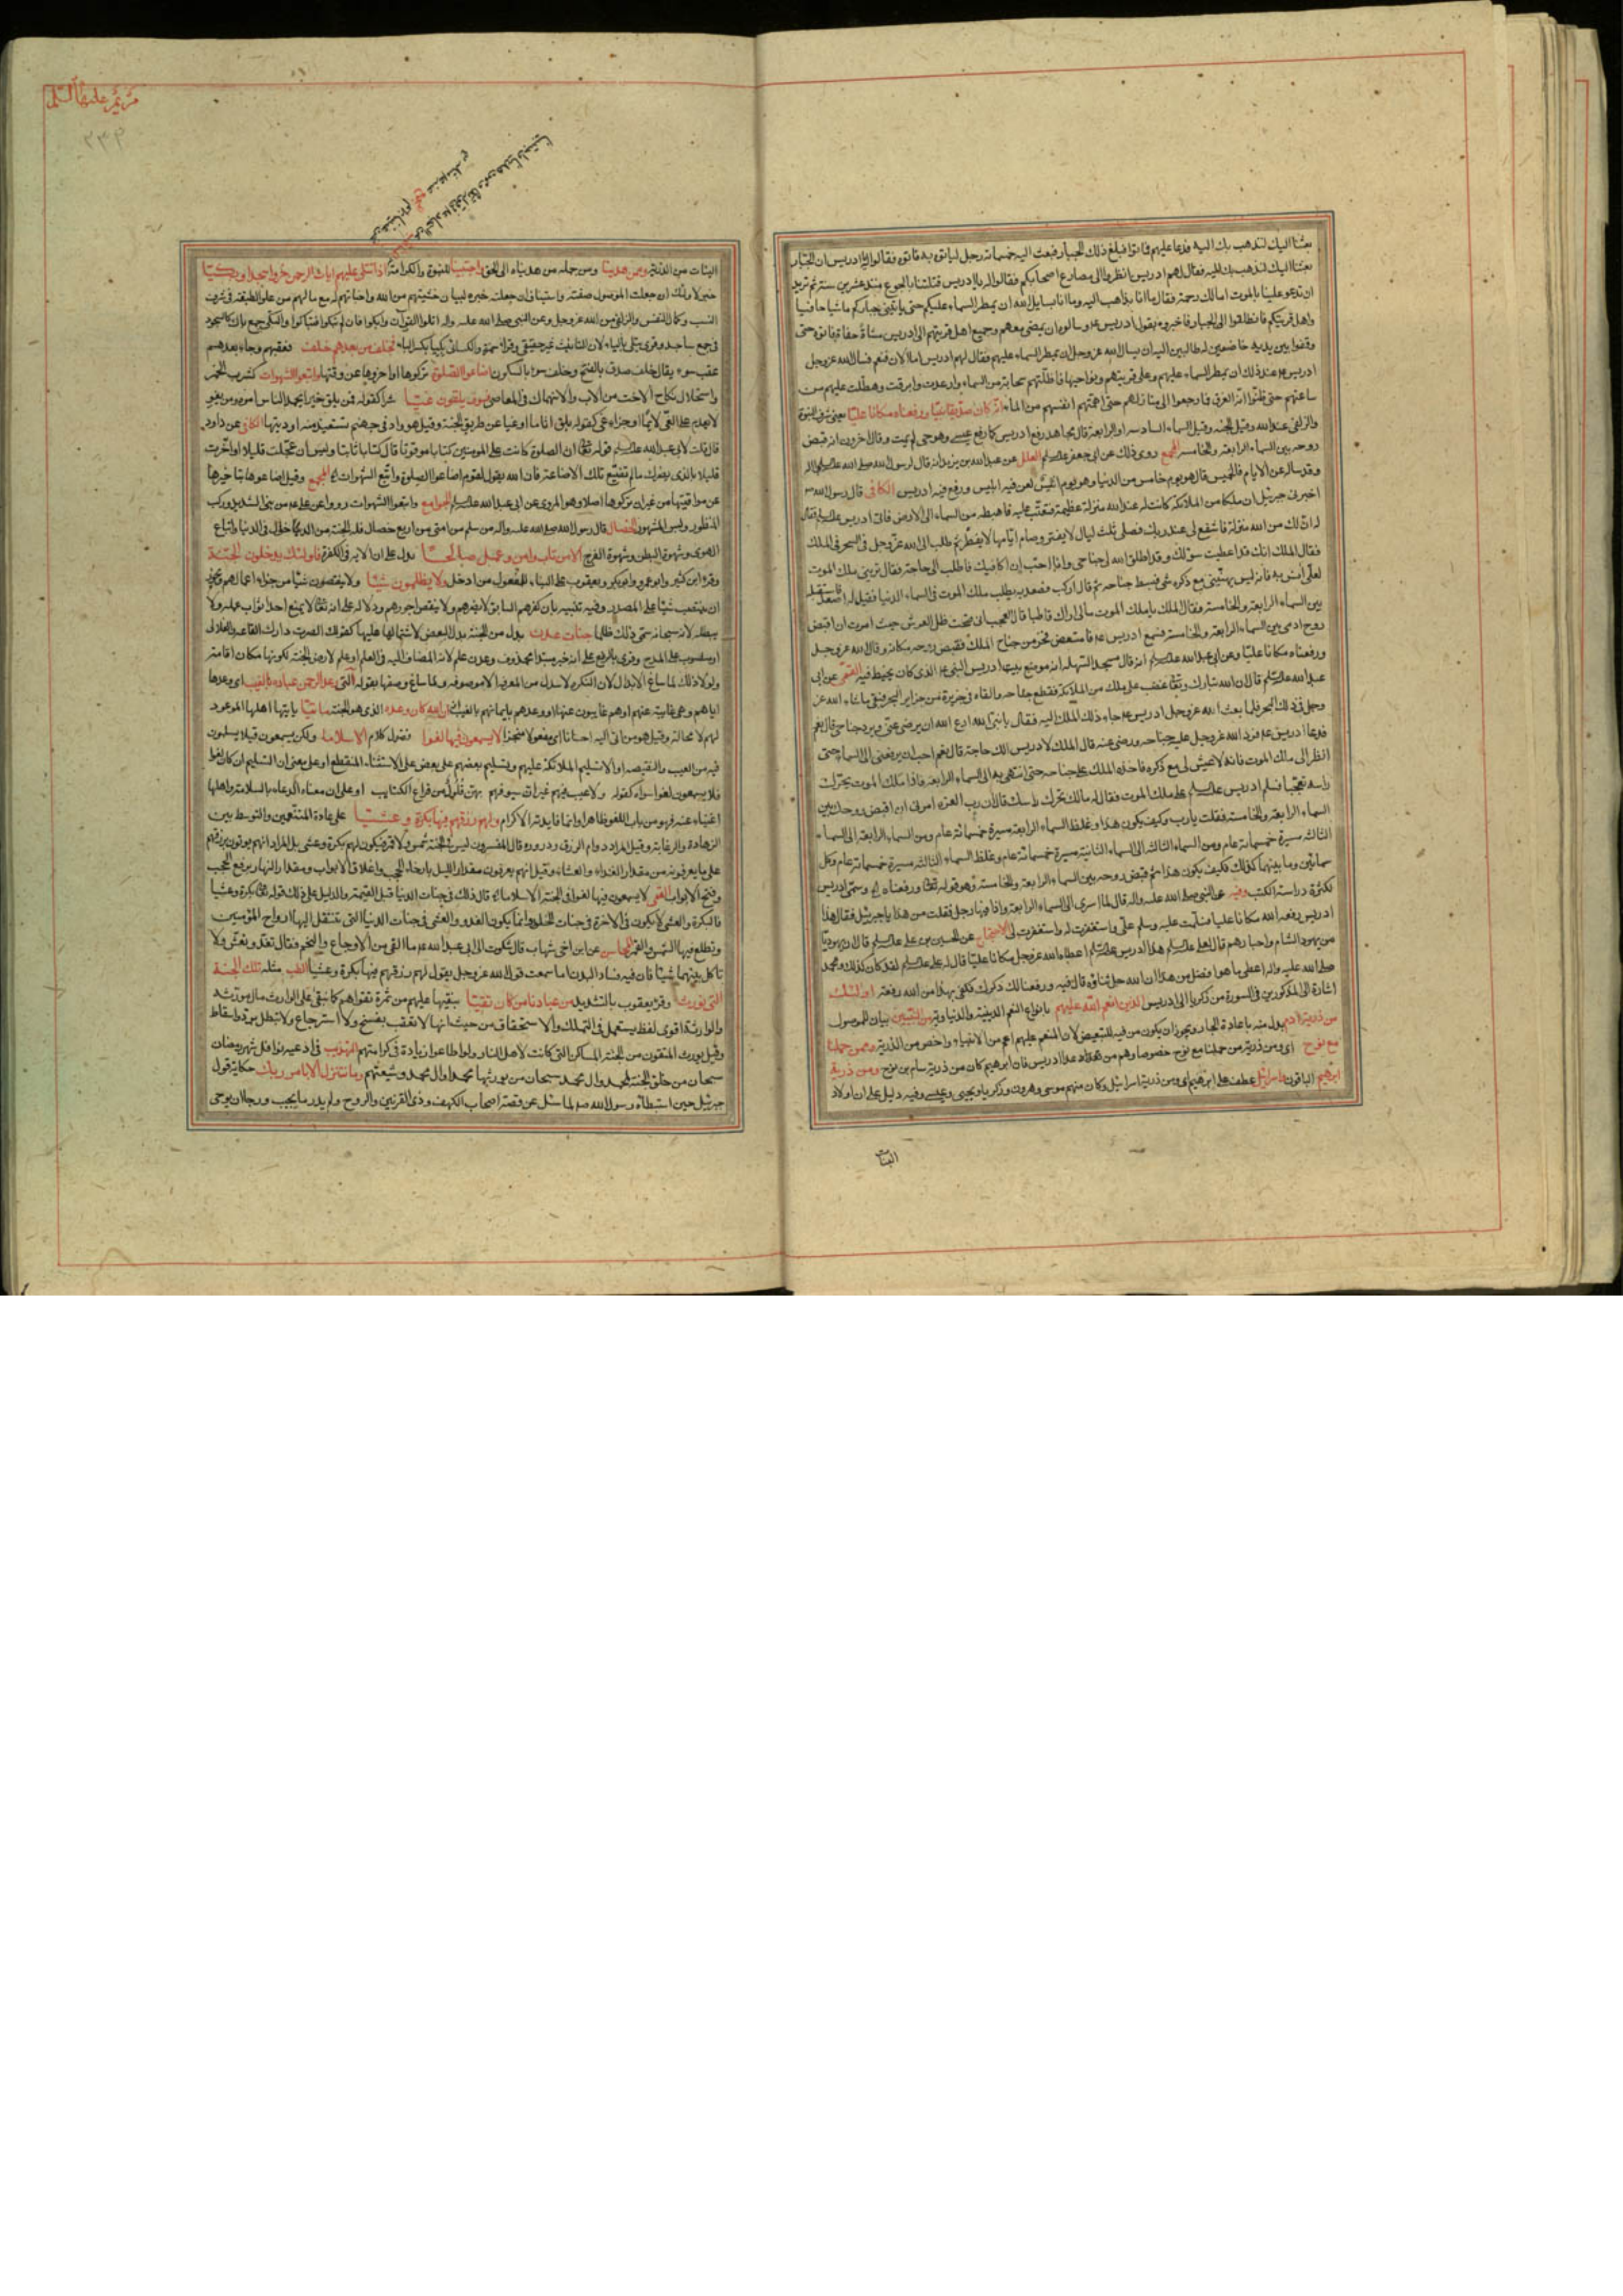 بعثنا اليك لنذهب بك اليه فدعا عليهم فماتوا فبلغ ذلك الجبار فبعث اليه خمسمائة رجل لياتوه به فاتوه فقالوا يا ادريس ان الجبار
بعثنا اليك لنذهب بك اليه فقال لهم ادريس انظروا الى مصارع اصحابكم فقالوا له يا ادريس قتلتنا بالجوع منذ عشرين سنة ثم تريد
ان تدعو علينا بالموت اما لك رحمة فقال ما انا بذاهب اليه وما انا بسايل الله ان يمطر السماء عليكم حتى ياتيني جباركم ماشيا حافيا
واهل قريتكم فانطلقوا الى الجبار فاخبروه بقول ادريس وسالوه ان يمضي معهم وجميع اهل قريتهم الى ادريس مشاة حفاة فاتوه حتى
وقفوا بين يديه خاضعين له طالبين اليه ان يسال الله عز وجل ان يمطر السماء عليهم فقال لهم ادريس اما الان فنعم فسال الله عز وجل
ادريس عند ذلك ان يمطر السماء عليهم وعلى قريتهم ونواحيها فاظلتهم سحابة من السماء وارعدت وابرقت وهطلت عليهم من
ساعتهم حتى ظنوا انه الغرق فما رجعوا الى منازلهم حتى اهمتهم انفسهم من الماء انه كان صديقا نبيا ورفعناه مكانا عليا يعني شرف النبوة
والزلفى عند الله وقيل الجنة وقيل السماء السادسة او الرابعة قال مجاهد رفع ادريس كما رفع عيسى وهو حي لم يمت وقال اخرون انه قبض
روحه بين السماء الرابعة والخامسة المجمع روى ذلك عن ابي جعفر العلل عن عبد الله بن يزيد انه قال لرسول الله صلى الله عليه واله
وقد ساله عن الايام فالخميس قال هو يوم خامس من الدنيا وهو يوم انيس لعن فيه ابليس ورفع فيه ادريس الكافي قال رسول الله
اخبرني جبرئيل ان ملكا من الملائكة كانت له عند الله منزلة عظيمة فتعتب عليه فاهبطه من السماء الى الارض فاتى ادريس فقال
له ان لك من الله منزلة فاشفع لي عند ربك فصلى ثلث ليال لا يفتر وصام ايامها لا يفطر ثم طلب الى الله عز وجل في السحر في الملك
فقال الملك انك قد اعطيت سؤلك وقد اطلق الله لي جناحي وانا احب ان اكافيك فاطلب الى حاجة فقال تريني ملك الموت
لعلي انس به فانه ليس يهنيني مع ذكره شيء فبسط جناحه ثم قال اركب فصعد به يطلب ملك الموت في السماء الدنيا فقيل له اصعد فاستقبله
بين السماء الرابعة والخامسة وفقال الملك يا ملك الموت مالي اراك قاطبا قال العجب اني تحت ظل العرش حيث امرت ان اقبض
روح ادمي بين السماء الرابعة والخامسة فسمع ادريس فامتعض فخر من جناح الملك فقبض روحه مكانه وقال الله عز وجل
ورفعناه مكانا عليا وعن ابي عبد الله انه قال مسجد السهلة انه موضع بيت ادريس النبي الذي كان يخيط فيه القمي عن ابي
عبد الله قال ان الله تبارك وتعالى غضب على ملك من الملائكة فقطع جناحه والقاه في جزيرة من جزاير البحر فبقي ما شاء الله عز
وجل في ذلك البحر فلما بعث الله عز وجل ادريس جاء ذلك الملك اليه فقال يا نبي الله ادع الله ان يرضى عني ويرد جناحي قال نعم
فدعا ادريس فرد الله عز وجل عليه جناحه ورضي عنه قال الملك لادريس الك حاجة قال نعم احب ان ترفعني الى السماء حتى
انظر الى ملك الموت فانه لا تعيش لي مع ذكره فاخذه الملك على جناحه حتى انتهى به الى السماء الرابعة فاذا ملك الموت يحرك
راسه تعجبا فسلم ادريس على ملك الموت فقال له مالك تحرك راسك قال ان رب العزة امرني ان اقبض روحك بين
السماء الرابعة والخامسة فقلت يا رب وكيف يكون هذا وغلظ السماء الرابعة مسيرة خمسمائة عام ومن السماء الرابعة الى السماء
الثالثة مسيرة خمسمائة عام ومن السماء الثالثة الى السماء الثانية مسيرة خمسمائة عام وغلظ السماء الثالثة مسيرة خمسمائة عام وكل
سمائين وما بينهما كذلك فكيف يكون هذا ثم قبض روحه بين السماء الرابعة والخامسة وهو قوله تعالى ورفعناه وسمي ادريس
لكثرة دراسة الكتب وفيه عن النبي صلى الله عليه واله قال لما اسري الى السماء الرابعة واذا فيها رجل فقلت من هذا يا جبرئيل فقال هذا
ادريس رفعه الله مكانا عليا فسلمت عليه وسلم علي واستغفرت له واستغفر لي الاحتجاج عن الحسين بن علي قال ان يهوديا
من يهود الشام واحبارهم قال لعلي هذا ادريس اعطاه الله عز وجل مكانا عليا قال له علي لقد كان كذلك ومحمد
صلى الله عليه واله اعطي ما هو افضل من هذا ان الله جل ثناؤه قال فيه ورفعنا لك ذكرك فكفى بهذا من الله رفعة اولئك
اشارة الى المذكورين في السورة من زكريا الى ادريس الذين انعم الله عليهم بانواع النعم الدينية والدنياوية من النبيين بيان للموصول
من ذرية ادم بدل منه باعادة الجار ويجوز ان يكون من فيه للتبعيض لان المنعم عليهم اعم من الانبياء واخص من الذرية وممن حملنا
مع نوح اي ومن ذرية من حملنا مع نوح خصوصا وهم من عدا ادريس فان ابرهيم كان من ذرية سام بن نوح ومن ذرية
ابرهيم الباقون واسرائيل عطف على ابرهيم اي ومن ذرية اسرائيل وكان منهم موسى وهرون وزكريا ويحيى وعيسى وفيه دليل على ان اولاد
البنات
مريم عليها السلام
٣٣٩
البنات من الذرية وممن هدينا ومن جملة من هديناه الى الحق واجتبينا للنبوة والكرامة اذا تتلى عليهم ايات الرحمن خروا سجدا وبكيا
خبر لاولئك ان جعلت الموصول صفته واستيناف ان جعلت خبره لبيان خشيتهم من الله واخباتهم له مع ما لهم من علو الطبقة في شرف
النسب وكمال النفس والزلفى من الله عز وجل وعن النبي صلى الله عليه واله اتلوا القران وابكوا فان لم تبكوا فتباكوا والبكي جمع باك كالسجود
في جمع ساجد وقرئ يتلى بالياء لان التانيث غير حقيقي وقرا حمزة والكسائي بكيا بكسر الباء فخلف من بعدهم خلف فعقبهم وجاء بعدهم
عقب سوء يقال خلف صدق بالفتح وخلف سوء بالسكون اضاعوا الصلوة تركوها او اخروها عن وقتها واتبعوا الشهوات كشرب الخمر
واستحلال نكاح الاخت من الاب والانهماك في المعاصي فسوف يلقون غيا شرا كقوله فمن يلق خيرا يحمد الناس امره ومن يغو
لا يعدم على الغي لائما او جزاء غي كقوله يلق اثاما او غيا عن طريق الجنة وقيل هو واد في جهنم تستعيذ منه اوديتها الكافي عن داود
قال قلت لابي عبد الله قوله تعالى ان الصلوة كانت على المومنين كتابا موقوتا قال كتابا ثابتا وليس ان عجلت قليلا او اخرت
قليلا بالذي يضرك ما لم تضيع تلك الاضاعة فان الله يقول لقوم اضاعوا الصلوة واتبعوا الشهوات المجمع وقيل اضاعوها بتاخيرها
عن مواقيتها من غير ان تركوها اصلا وهو المروي عن ابي عبد الله الجوامع واتبعوا الشهوات رووا عن علي من بنى الشديد وركب
المنظور ولبس المشهور الخصال قال رسول الله صلى الله عليه واله من سلم من امتي من اربع خصال فله الجنة من الدخول في الدنيا واتباع
الهوى وشهوة البطن وشهوة الفرج الا من تاب وامن وعمل صالحا يدل على ان الاية في الكفرة فاولئك يدخلون الجنة
وقرا ابن كثير وابو عمرو وابو بكر ويعقوب على البناء للمفعول من ادخل ولا يظلمون شيئا ولا ينقصون شيئا من جزاء اعمالهم ويجوز
ان ينتصب شيئا على المصدر وفيه تنبيه بان كفرهم السابق لا يضرهم ولا ينقص اجورهم ودلالة على انه تعالى لا يمنع احدا ثواب عمله ولا
يبطله لانه سبحانه سمى ذلك ظلما جنات عدن بدل من الجنة بدل البعض لاشتمالها عليها كقولك ابصرت دارك القاعة والعلالي
او منصوب على المدح وقرئ بالرفع على انه خبر مبتدا محذوف وعدن علم لانه المضاف اليه في العلم او علم لارض الجنة لكونها مكان اقامة
ولولا ذلك لما ساغ الابدال لان النكرة لا تبدل من المعرفة الا موصوفة ولما ساغ وصفها بقوله التي وعد الرحمن عباده بالغيب اي وعدها
اياهم وهي غايبة عنهم او هم غايبون عنها او وعدهم بايمانهم بالغيب انه كان وعده الذي هو الجنة ماتيا ياتيها اهلها الموعود
لهم لا محالة وقيل هو من اتى اليه احسانا اي مفعولا منجزا لا يسمعون فيها لغوا فضول كلام الا سلاما ولكن يسمعون قولا يسلمون
فيه من العيب والنقيصة او الا تسليم الملائكة عليهم وتسليم بعضهم على بعض على الاستثناء المنقطع او على معنى ان التسليم ان كان لغوا
فلا يسمعون لغوا سواه كقوله ولا عيب فيهم غير ان سيوفهم بهن فلول من قراع الكتايب او على ان معناه الدعاء بالسلامة واهلها
اغنياء عنه فهو من باب اللغو ظاهرا وانما فايدته الاكرام ولهم رزقهم فيها بكرة وعشيا على عادة المتنعمين والتوسط بين
الزهادة والرغابة وقيل المراد دوام الرزق ودروره قال المفسرون ليس في الجنة شمس ولا قمر فيكون لهم بكرة وعشي بل المراد انهم يوتون برزقهم
على ما يعرفونه من مقدار الغداء والعشاء وقيل انهم يعرفون مقدار الليل بارخاء الحجب واغلاق الابواب ومقدار النهار برفع الحجب
وفتح الابواب القمي لا يسمعون فيها لغوا في الجنة الا سلاما قال ذلك في جنات الدنيا قبل القيمة والدليل على ذلك قوله بكرة وعشيا
فالبكرة والعشي لا يكون في الاخرة في جنات الخلد وانما يكون الغدو والعشي في جنات الدنيا التي تنتقل اليها ارواح المؤمنين
وتطلع فيها الشمس والقمر المحاسن عن ابن اخي شهاب قال شكوت الى ابي عبد الله ما القى من الاوجاع والتخم فقال تغد وتعش ولا
تاكل بينهما شيئا فان فيه فساد البدن اما سمعت قول الله عز وجل يقول لهم رزقهم فيها بكرة وعشيا الطب مثله تلك الجنة
التي نورث وقرا يعقوب بالتشديد من عبادنا من كان تقيا نبقيها عليهم من ثمرة تقواهم كما نبقي على الوارث مال مورثه
والوراثة اقوى لفظ يستعمل في التملك والاستحقاق من حيث انها لا تعقب بفسخ ولا استرجاع ولا تبطل برد واسقاط
وقيل يورث المتقون من الجنة المساكن التي كانت لاهل النار ولو اطاعوا زيادة في كرامتهم التهذيب في ادعية نوافل شهر رمضان
سبحان من خلق الجنة لمحمد وال محمد سبحان من يورثها محمدا وال محمد وشيعتهم وما نتنزل الا بامر ربك حكاية قول
جبرئيل حين استبطاه رسول الله لما سئل عن قصة اصحاب الكهف وذي القرنين والروح ولم يدر ما يجيب ورجا ان يوحى